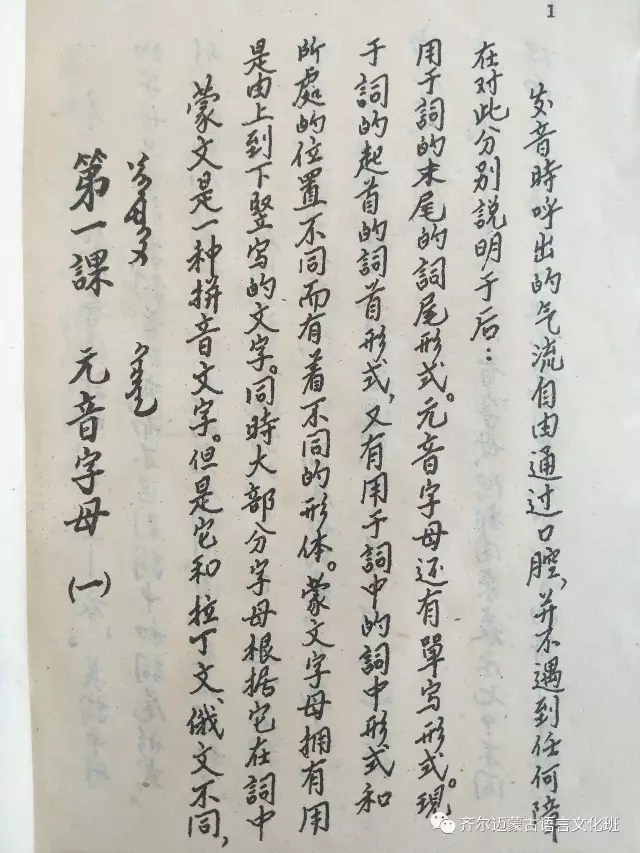 1
第一課 元音字母 (一)
蒙文是一种拼音文字。但是它和拉丁文、俄文不同,
是由上到下竪写的文字。同時大部分字母根据它在詞中
所處的位置不同而有着不同的形体。蒙文字母拥有用
于詞的起首的詞首形式,又有用于詞中的詞中形式和
用于詞的末尾的詞尾形式。元音字母还有單写形式。現
在对此分别説明于后:
发音時呼出的气流自由通过口腔,并不遇到任何障
齐尔迈蒙古语言文化班